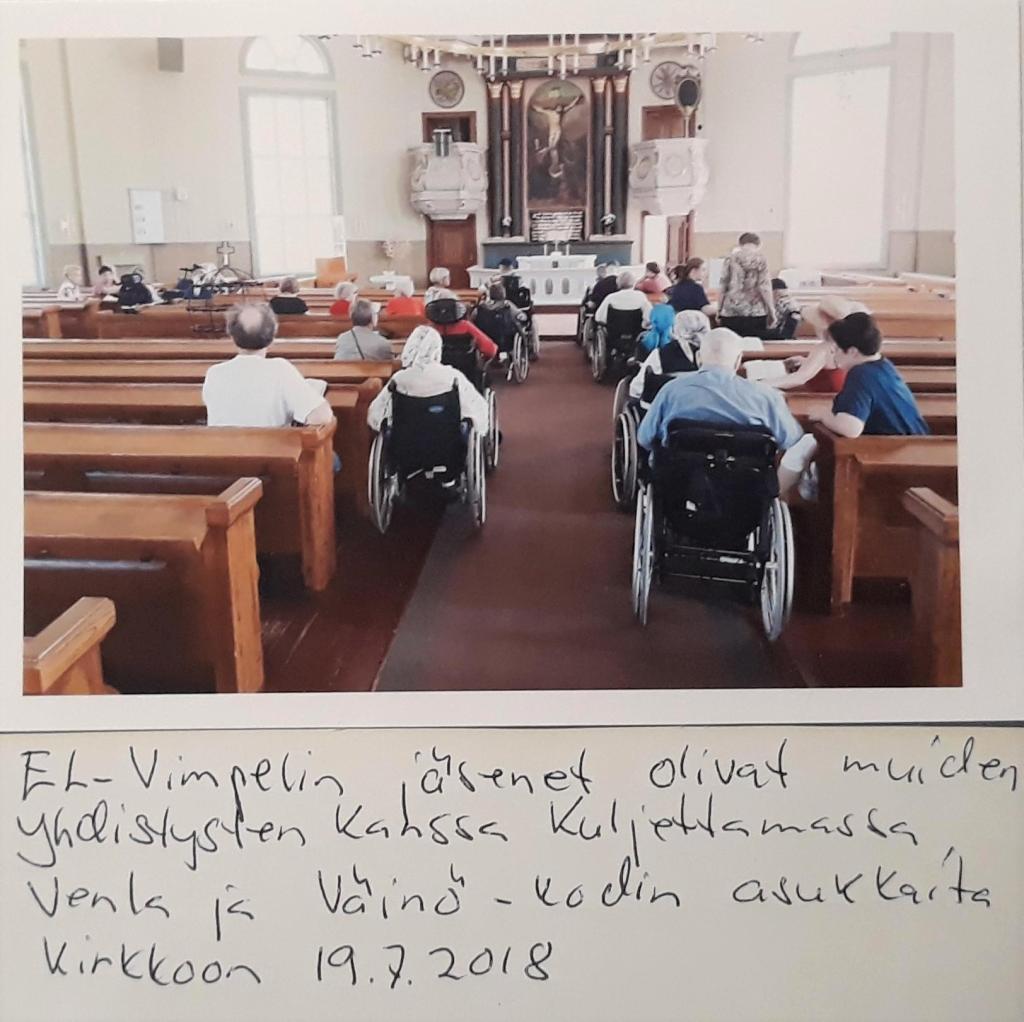 EL-Vimpelin jäsenet olivat muiden
yhdistysten kanssa kuljettamassa
Venla ja Väinö-kodin asukkaita
kirkkoon 19.7.2018